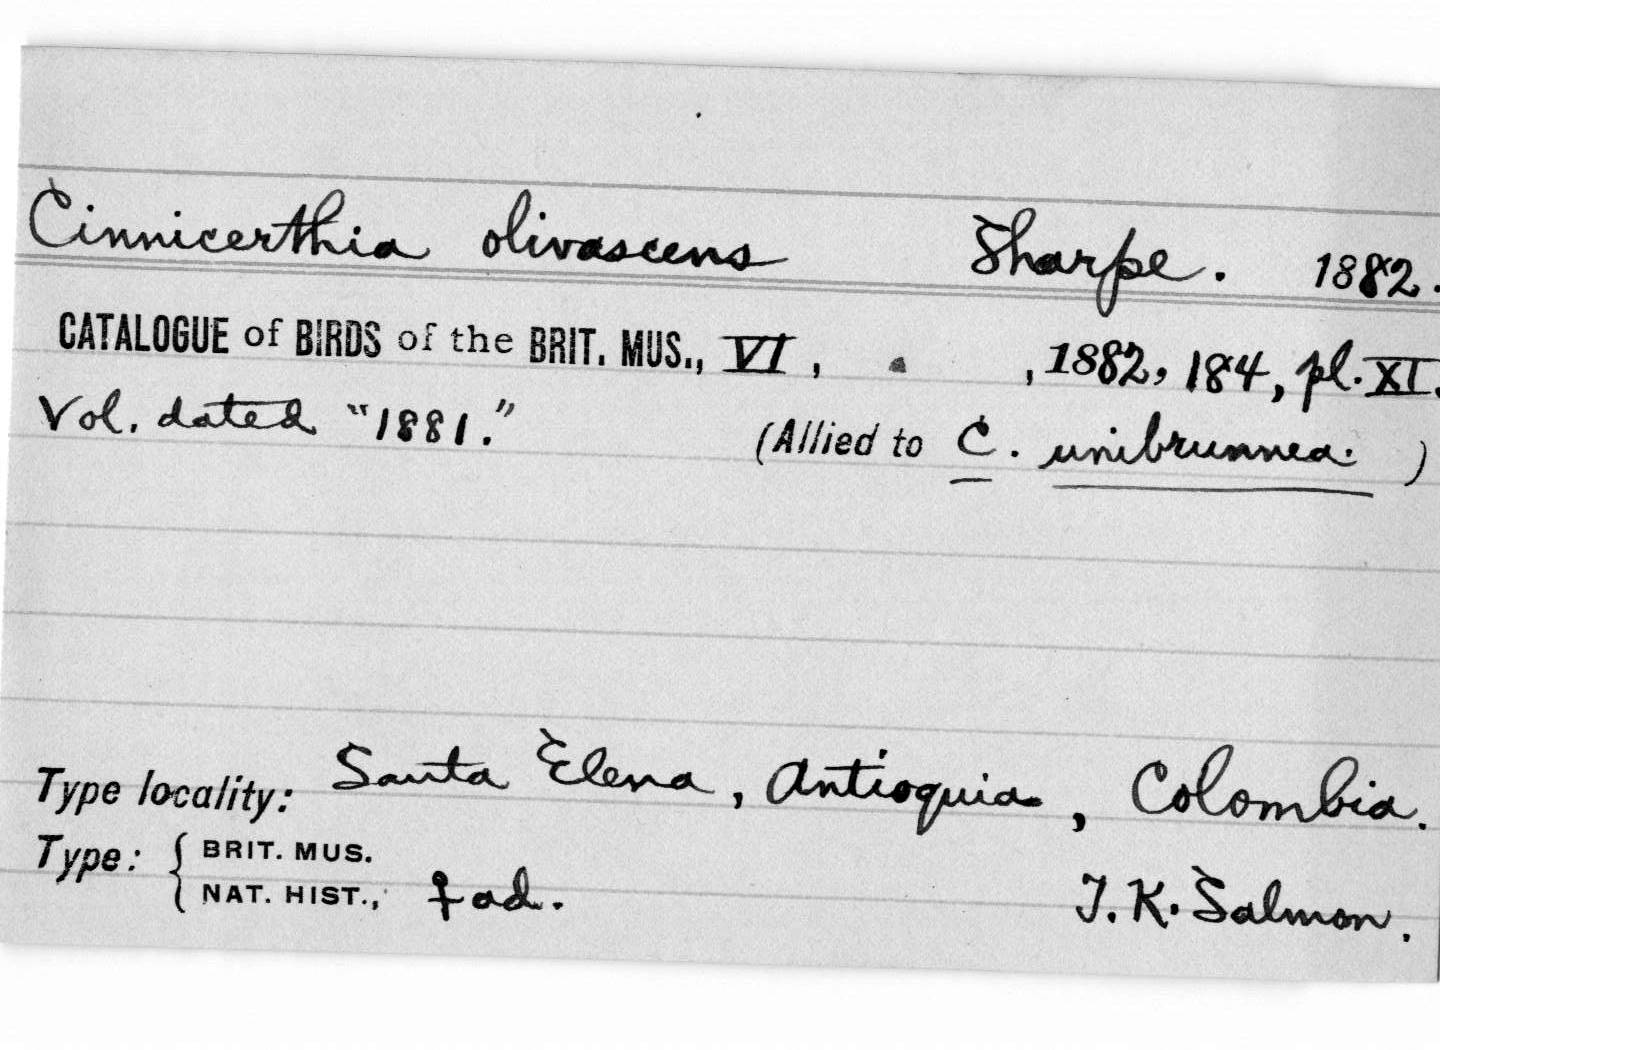 Cinnicerthia olivascens Sharpe. 1882.
CATALOGUE of BIRDS of the BRIT. MUS., VI, , 1882, 184, pl. XI.
Vol. dated "1881." (Allied to C. unibrunnea. )
Type locality: Santa Elena, Antioquia, Colombia.
Type: { BRIT. MUS.
NAT. HIST., ♀ ad. T. K. Salmon.